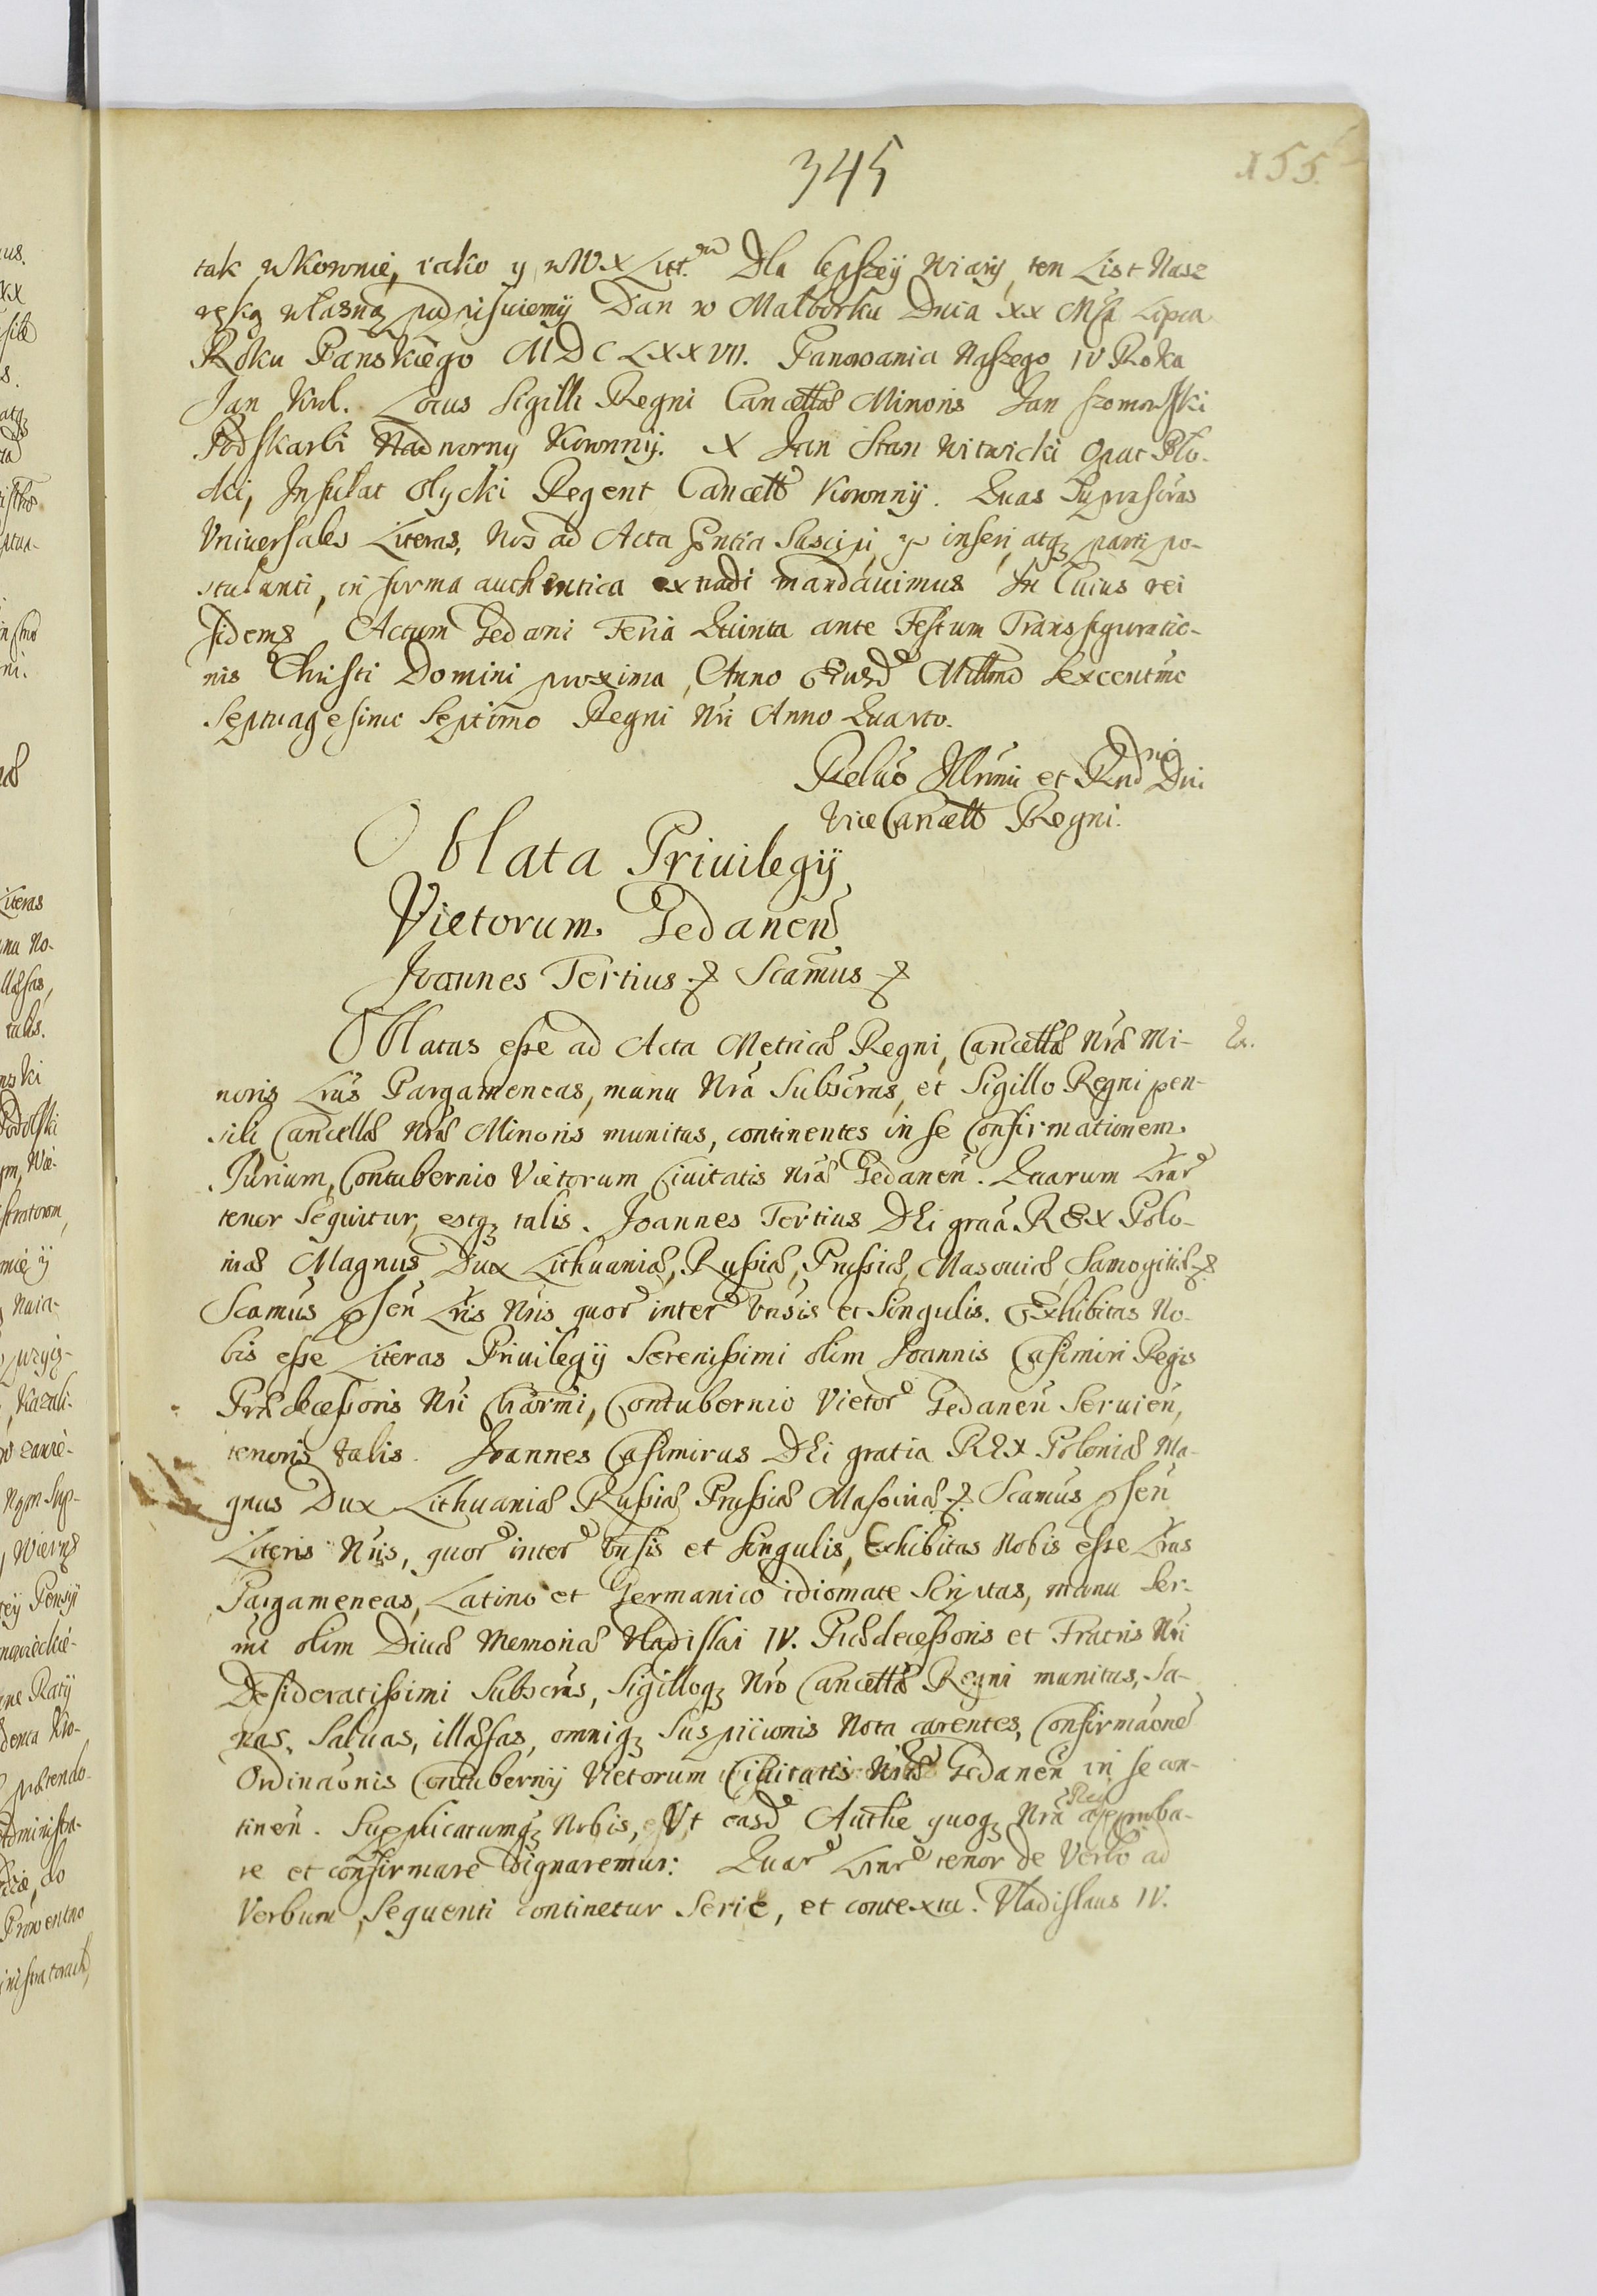 345
155.
tak wKoronie, iako y wWX Litt.m Dla lepszey wiary, ten List Nasz
ręką własną podpisuiemy Dan w Malborku Dnia xx Msca Lipca
Roku Panskiego MDCLXXVII. Panowania Naszego IV Roku
Jan Krol. Locus Sigilli Regni Cancellae Minoris Jan Szomowski
Podskarbi Nadworny Koronny. X Jan Stan Witwicki Opat Plo-
cki, Infulat Olycki Regent Cancell Koronny. Quas Suprascras
Vniuersales Literas, Nos ad Acta pntia Suscipi, et inseri, atq parti po-
stulanti, in forma authentica extradi mandauimus In Cuius rei
fidem Actum Gedani Feria Quinta ante Festum Transfiguratio-
nis Christi Domini proxima, Anno Eiusd Millmo Sexcentmo
Septuagesimo Septimo Regni Nri Anno Quarto.
Relaõ Illrmi et Rndmi Dni
ViceCancell Regni.
Oblata Priuilegij
Vietorum Gedanen
Joannes Tertius & Scamus &
Oblatas esse ad Acta Metricae Regni, Cancellae Nrae Mi-
noris Lras Pargameneas, manu Nra Subscras, et Sigillo Regni pen-
sili Cancellae Nrae Minoris munitas, continentes in se Confirmationem
Jurium, Contubernio Vietorum Ciuitatis Nrae Gedanen. Quarum Lrar
tenor Sequitur, estq talis. Joannes Tertius DEi graa REX Polo-
niae Magnus Dux Lithuaniae, Russiae, Prussiae, Masouiae, Samogitiae &
Scamus psen Lris Nris quor inter vnsis et Singulis. Exhibitas No-
bis esse Literas Priuilegij Serenissimi olim Joannis Casimiri Regis
Praedecessoris Nri Charmi, Contubernio Vietor Gedanen Seruien,
tenoris talis. Joannes Casimirus DEi gratia REX Poloniae Ma-
gnus Dux Lithuaniae Russiae Prussiae Masouiae & Scamus psen
Literis Nris, quor inter vnsis et singulis, Exhibitas Nobis esse Lras
Pargameneas, Latino et Germanico idiomate Scriptas, manu Ser-
mi olim Diuae Memoriae Vladislai IV. Praedecessoris et Fratris Nri
Desideratissimi Subscras, Sigilloq Nro Cancellae Regni munitas, Sa-
nas, Saluas, illaesas, omniq Suspicionis Nota carentes, Confirmaone
Ordinaonis Contubernij Vietorum Ciuitatis Nrae Gedanen in se con-
tinen. Supplicatumq Nobis, Vt easd Authe quoq Nra Rea approba-
re et confirmare dignaremur: Quar Lrar tenor de Verbo ad
Verbum Sequenti continetur Serie, et contextu. Vladislaus IV.